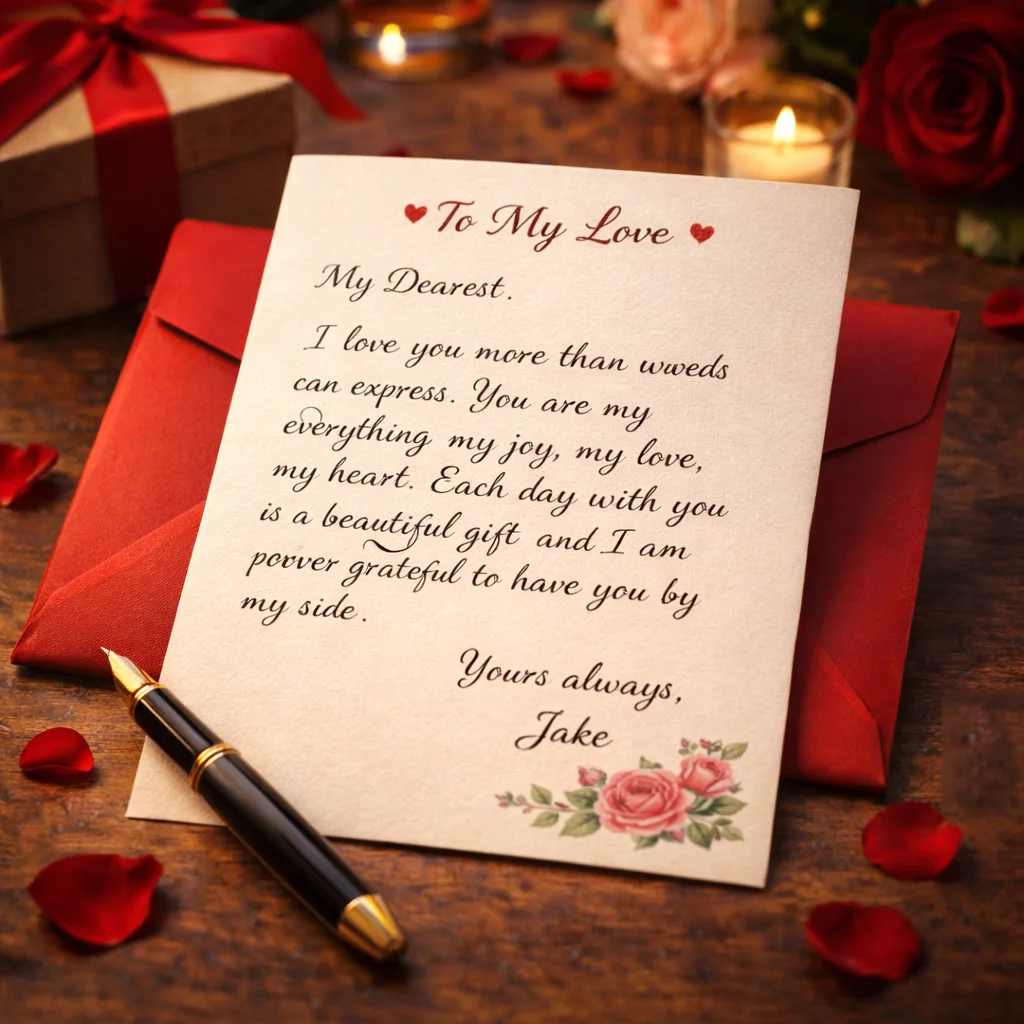 To My Love
My Dearest.
I love you more than wweds
can express. You are my
everything my joy, my love,
my heart. Each day with you
is a beautiful gift and I am
porver grateful to have you by
my side.
Yours always,
Jake